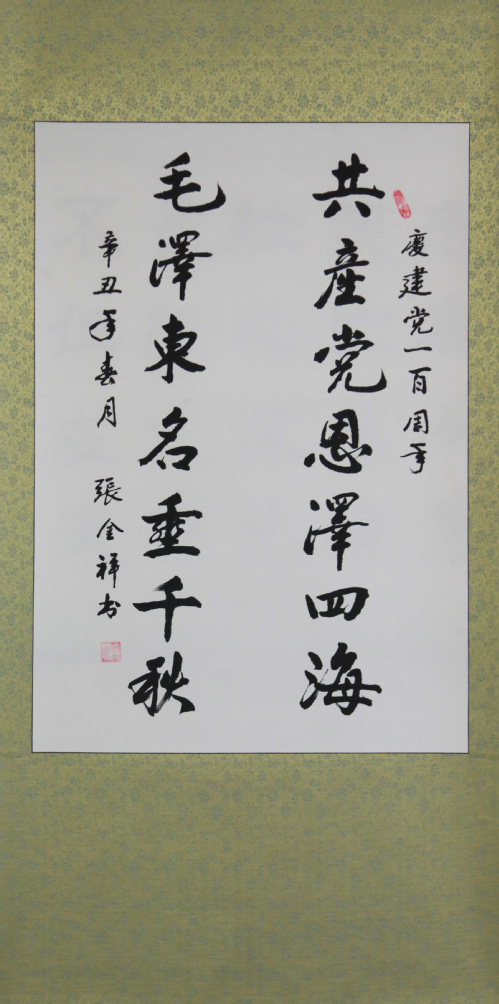 慶建党一百周年
共産党恩澤四海
毛澤東名垂千秋
辛丑年春月 張金祥书